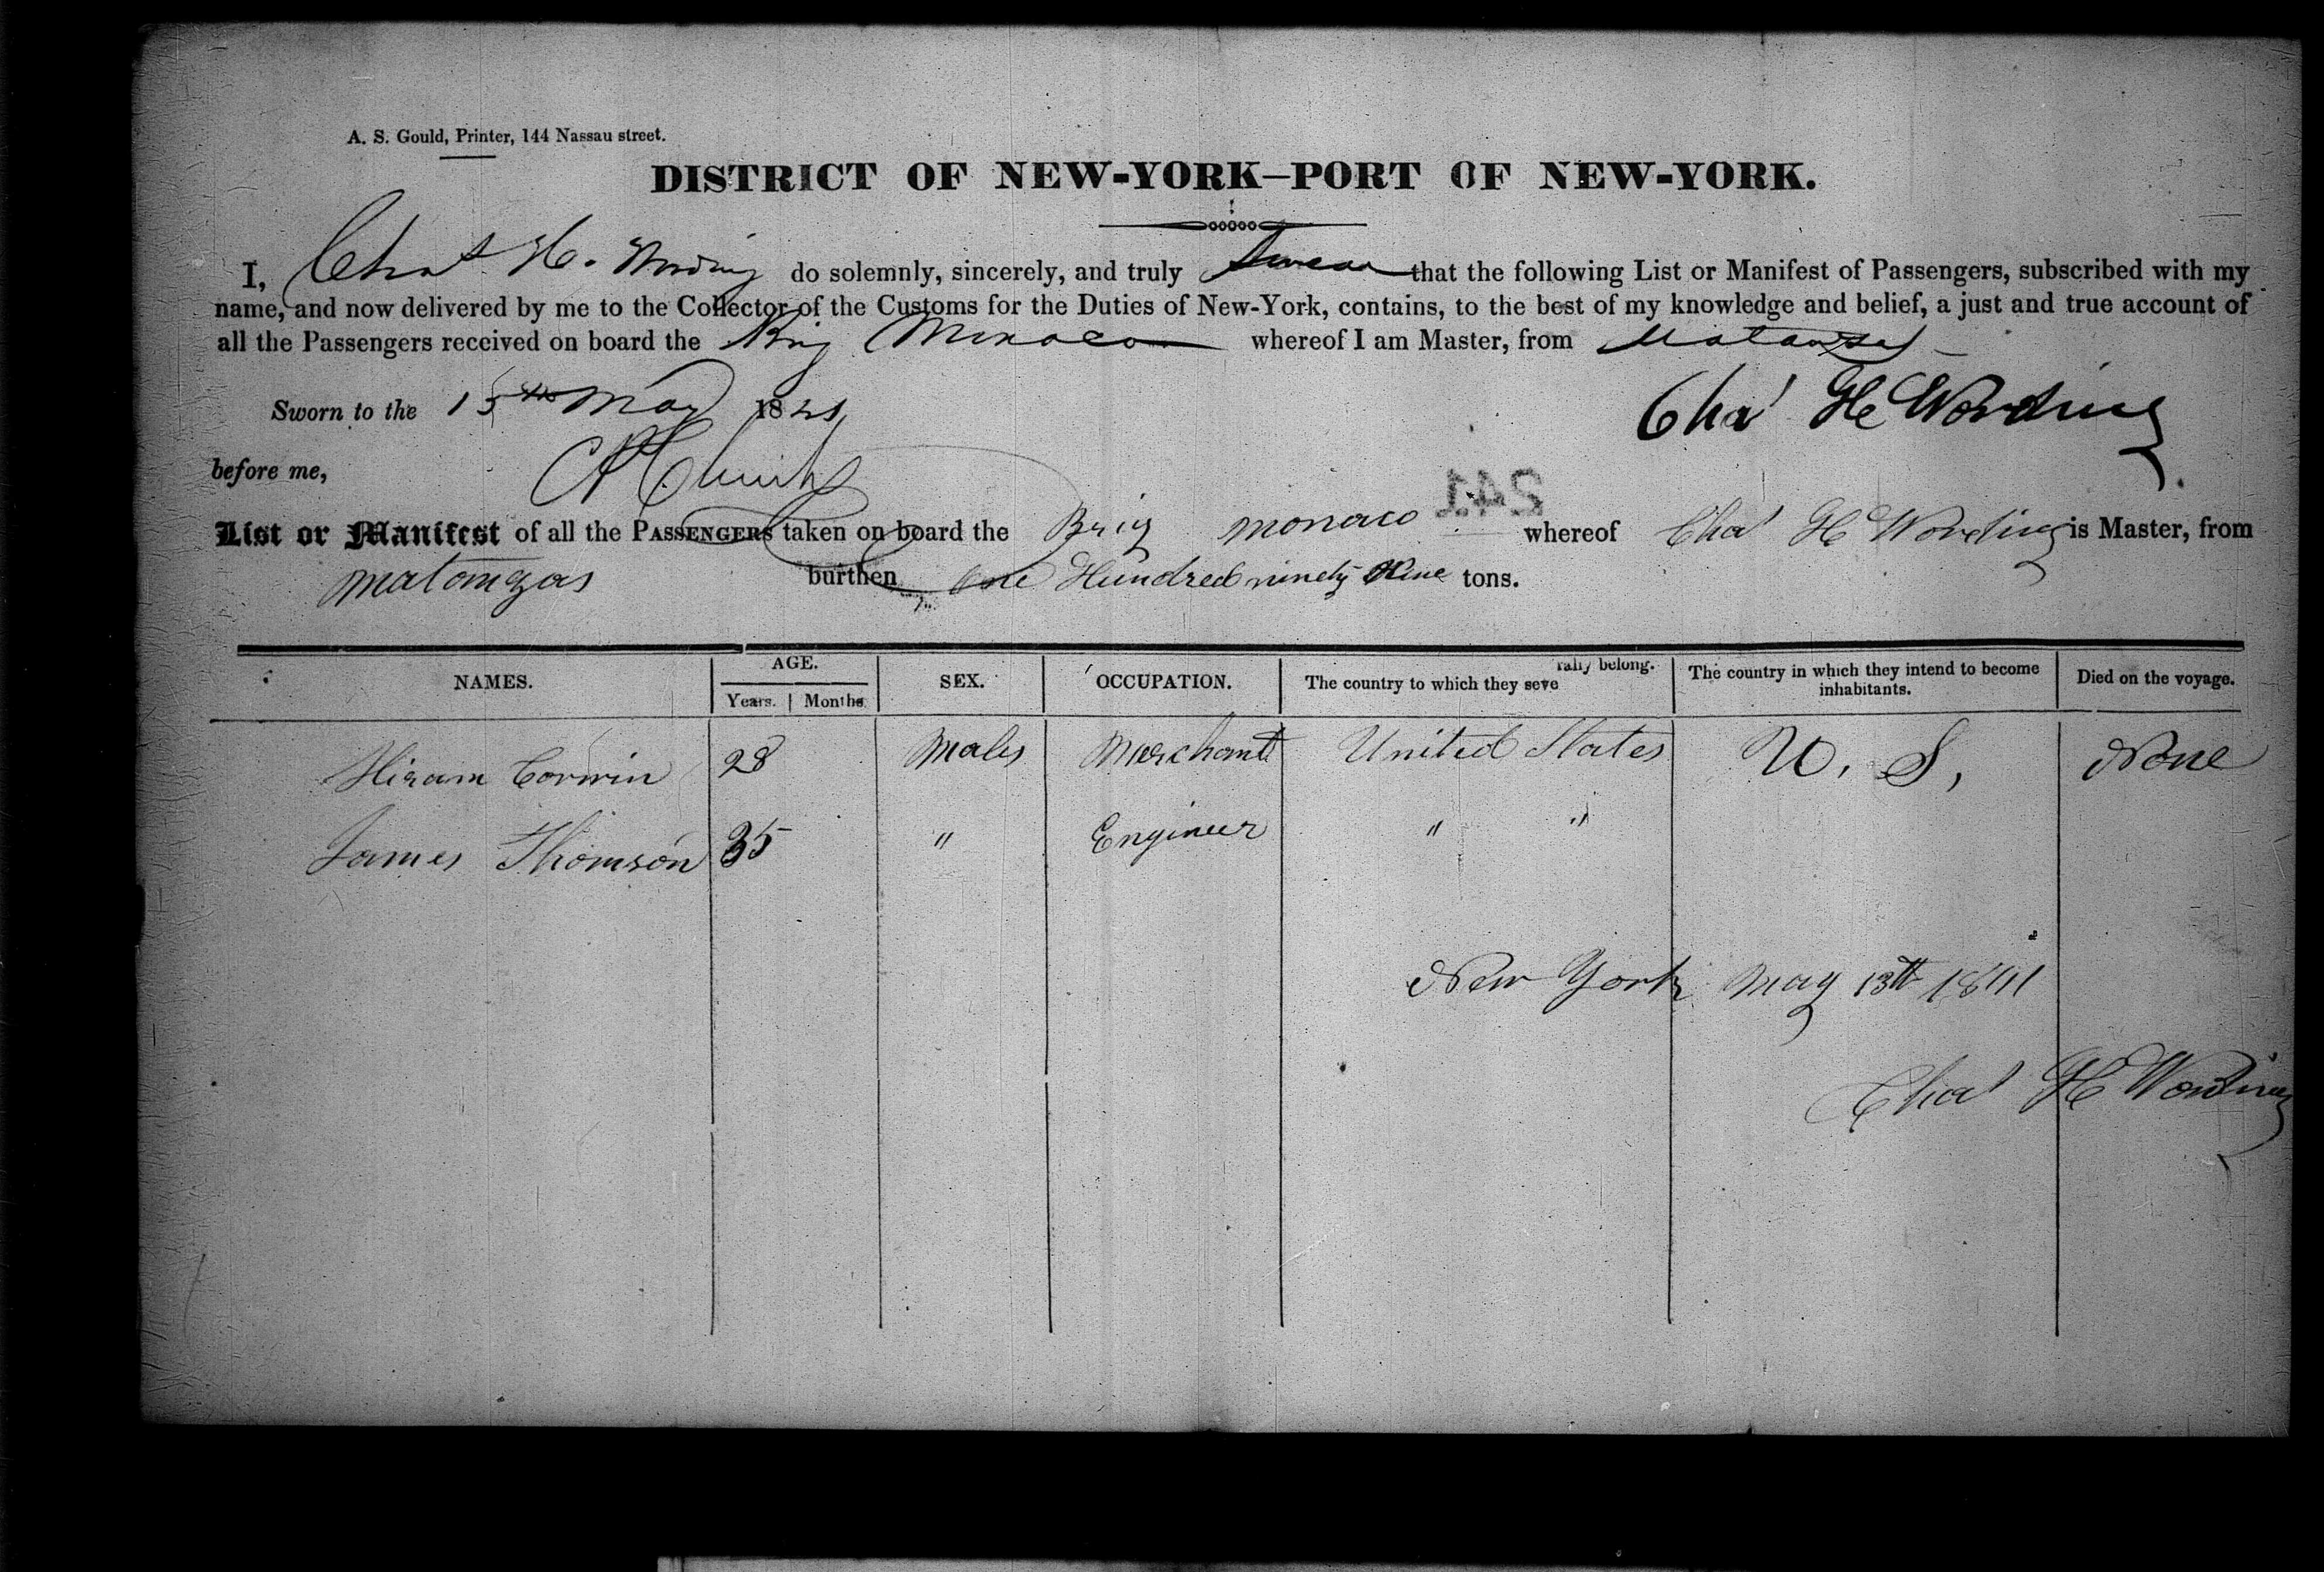 A. S. Gould, Printer, 144 Nassau street.
DISTRICT OF NEW-YORK—PORT OF NEW-YORK.
I, Chas H. Wording do solemnly, sincerely, and truly Swear that the following List or Manifest of Passengers, subscribed with my
name, and now delivered by me to the Collector of the Customs for the Duties of New-York, contains, to the best of my knowledge and belief, a just and true account of
all the Passengers received on board the Brig Monaco whereof I am Master, from Matanzas
Sworn to the 15th May 18
Chas H Wording
before me,
241
List or Manifest of all the PASSENGERS taken on board the Brig Monaco whereof Chas H Wording is Master, from
matanzas burthen one Hundred ninety Nine tons.
NAMES. AGE. Years. Months. SEX. OCCUPATION. The country to which they seve rally belong. The country in which they intend to become inhabitants. Died on the voyage.
Hiram Corwin 28 Males Merchant United States U. S, None
James Thomson 35 " Engineer " "
New York May 13th 1841
Chas H Wording